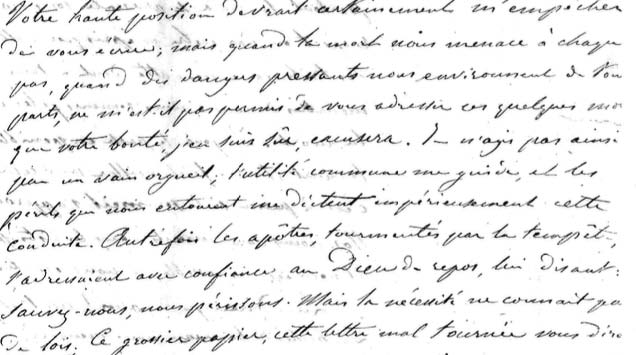 Votre haute position devrait certainement m'empêcher
de vous écrire; mais quand la mort nous menace à chaque
pas, quand des dangers pressants nous environnent de tou
parts, ne m'est-il pas permis de vous adresser ces quelques mo
que votre bonté, j'en suis sûr, excusera. Je n'agis pas ainsi
par un vain orgueil; l'utilité commune me guide, et les
périls qui nous entourent me dictent impérieusement cette
conduite. Autrefois les apôtres, tourmentés par la tempêt,
s'adressaient avec confiance au Dieu de repos, lui disant:
Sauvez-nous, nous périssons. Mais la nécessité ne connait pa
de lois. Ce grossier papier, cette lettre mal tournée vous diro